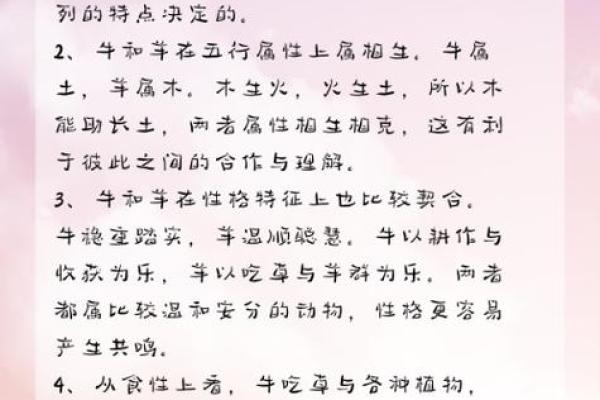 列的特点决定的。
2、牛和羊在五行属性上属相生。牛属
土，羊属木。木生火，火生土，所以木
能助长土，两者属性相生相克，这有利
于彼此之间的合作与理解。
3、牛和羊在性格特征上也比较契合。
牛稳重踏实，羊温顺聪慧。牛以耕作与
收获为乐，羊以吃草与羊群为乐。两者
都属比较温和安分的动物，性格更容易
产生共鸣。
4、从食性上看，牛吃草与各种植物，